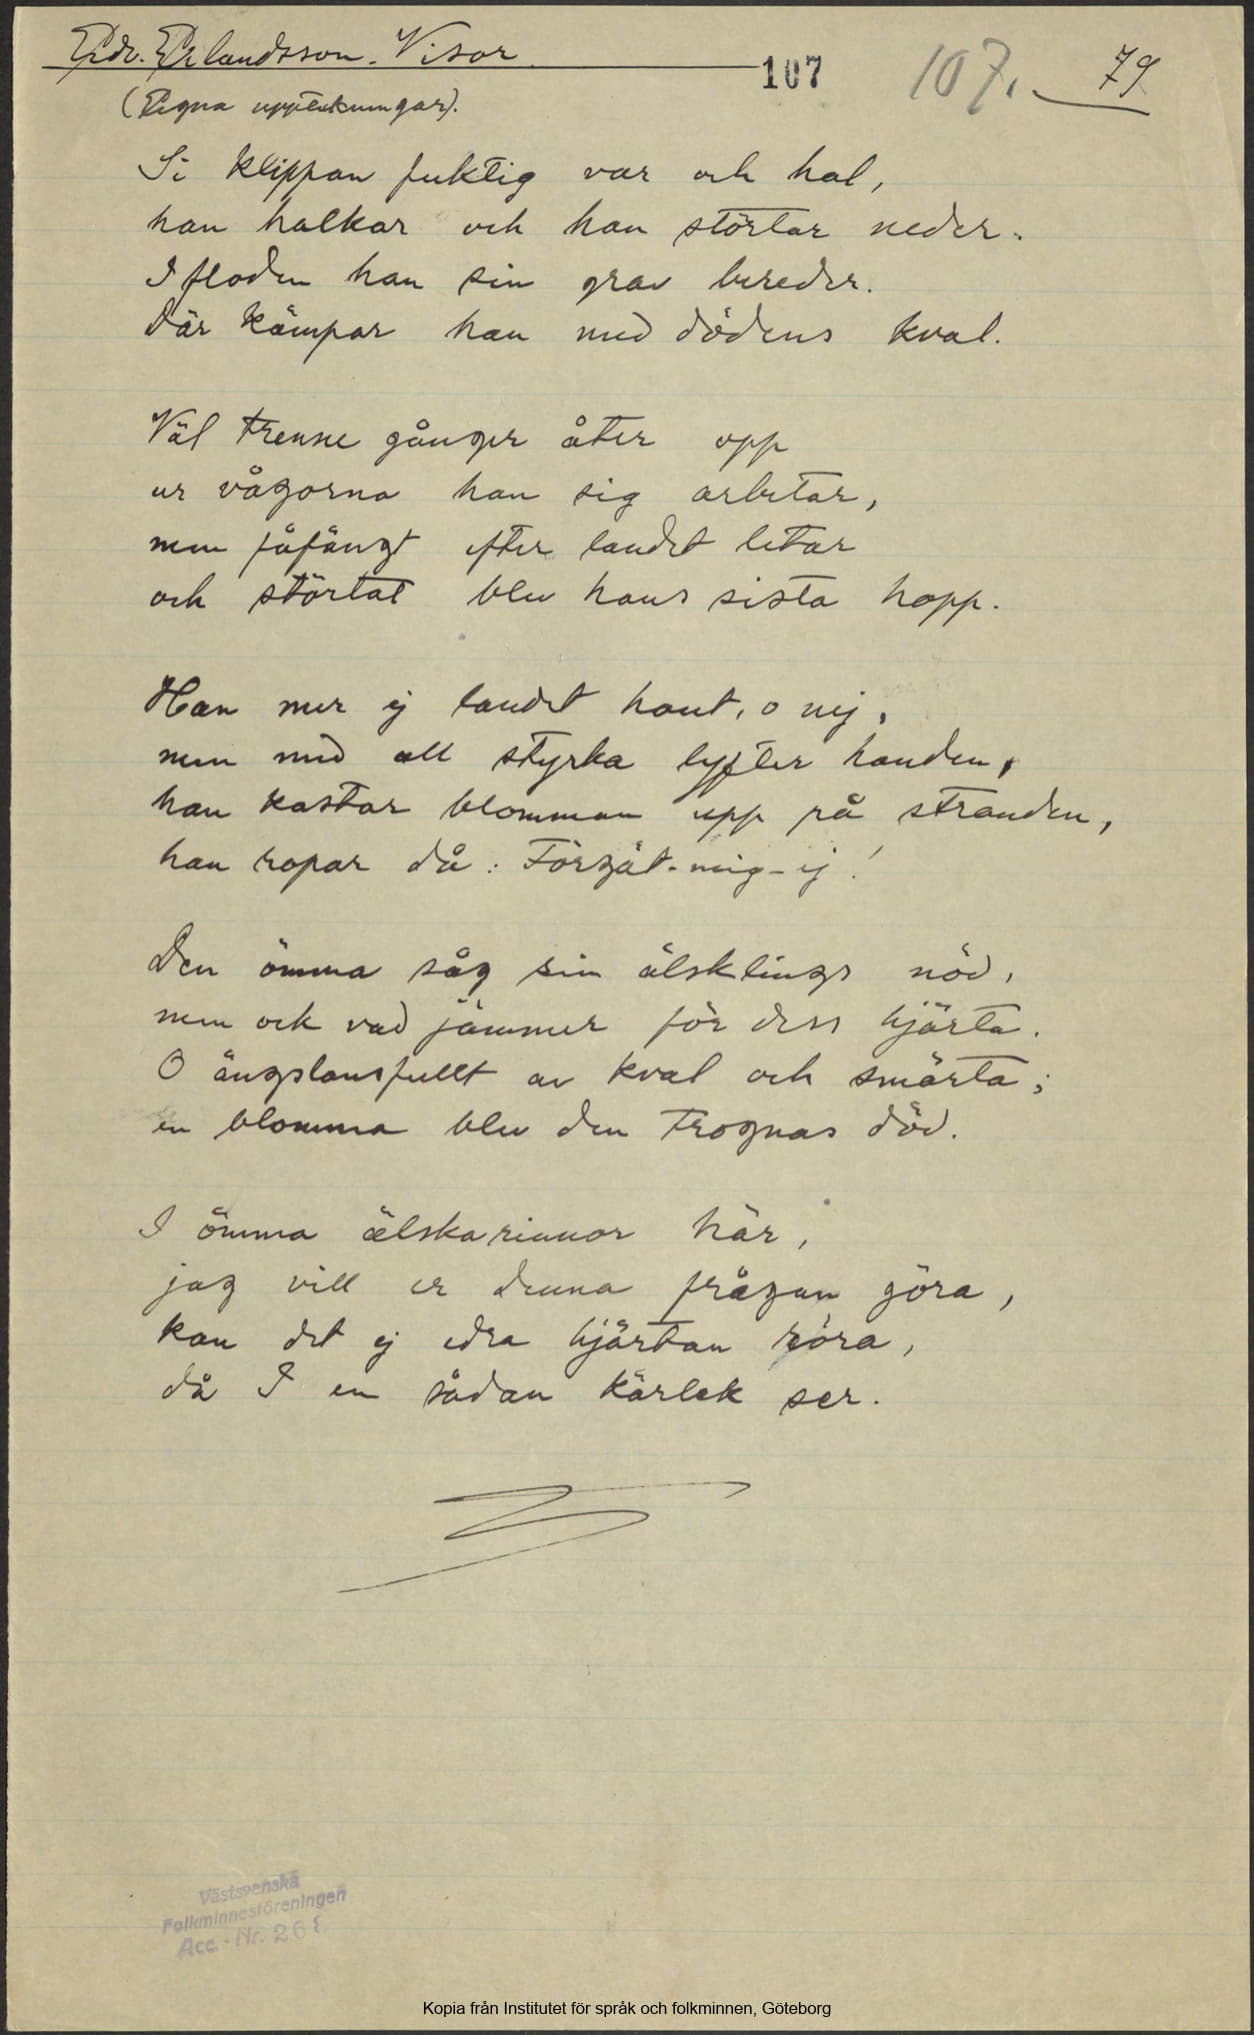 Edv. Erlandsson. Visor. 107 107. 79
(Egna uppteckningar).
Si klippan fuktig var och hal,
han halkar och han störtar neder.
I floden han sin grav bereder.
Där kämpar han med dödens kval.
Väl trenne gånger åter opp
ur vågorna han sig arbetar,
men fåfängt efter landet letar
och störtat blev hans sista hopp.
Han mer ej landet hant, o nej,
men med all styrka lyfter handen,
han kastar blomman upp på stranden,
han ropar då: Förgät-mig-ej!
Den ömma såg sin älsklings nöd,
men ock vad jämmer för dess hjärta.
O ängslansfullt av kval och smärta;
en blomma blev den trognas död.
I ömma älskarinnor här,
jag vill er denna frågan göra,
kan det ej edra hjärtan röra,
då I en sådan kärlek ser.
Västsvenska
Folkminnesföreningen
Acc.-Nr. 268
Kopia från Institutet för språk och folkminnen, Göteborg